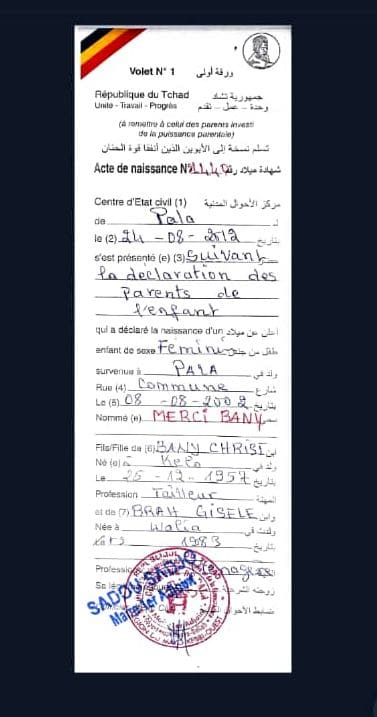 Volet N° 1 ورقة أولى
République du Tchad جمهورية تشاد
Unité - Travail - Progrès وحدة - عمل - تقدم
(à remettre à celui des parents investi
de la puissance parentale)
تسلم نسخة إلى الأبوين الذين
Acte de naissance N° شهادة ميلاد رقم
Centre d'Etat civil (1) مركز الأحوال المدنية
de Pala
le (2) 24-08-2012 بتاريخ
s'est présenté (e) (3) Suivant
la déclaration des
Parents de
l'enfant
qui a déclaré la naissance d'un أعلن عن ميلاد
enfant de sexe Féminin طفل من جنس
survenue à PALA ولد في
Rue (4) Commune شارع
Le (5) 08-08-2002 بتاريخ
Nommé (e) MERCI BANY
Fils/Fille de (6) BANY CHRIST ابن
Né (e) à Kelo ولد في
Le 25-12-1957 بتاريخ
Profession Tailleur المهنة
et de (7) BRAH GISELE وابن
Née à Walia ولدت في
1983 بتاريخ
Profession Ménagère
SADOU